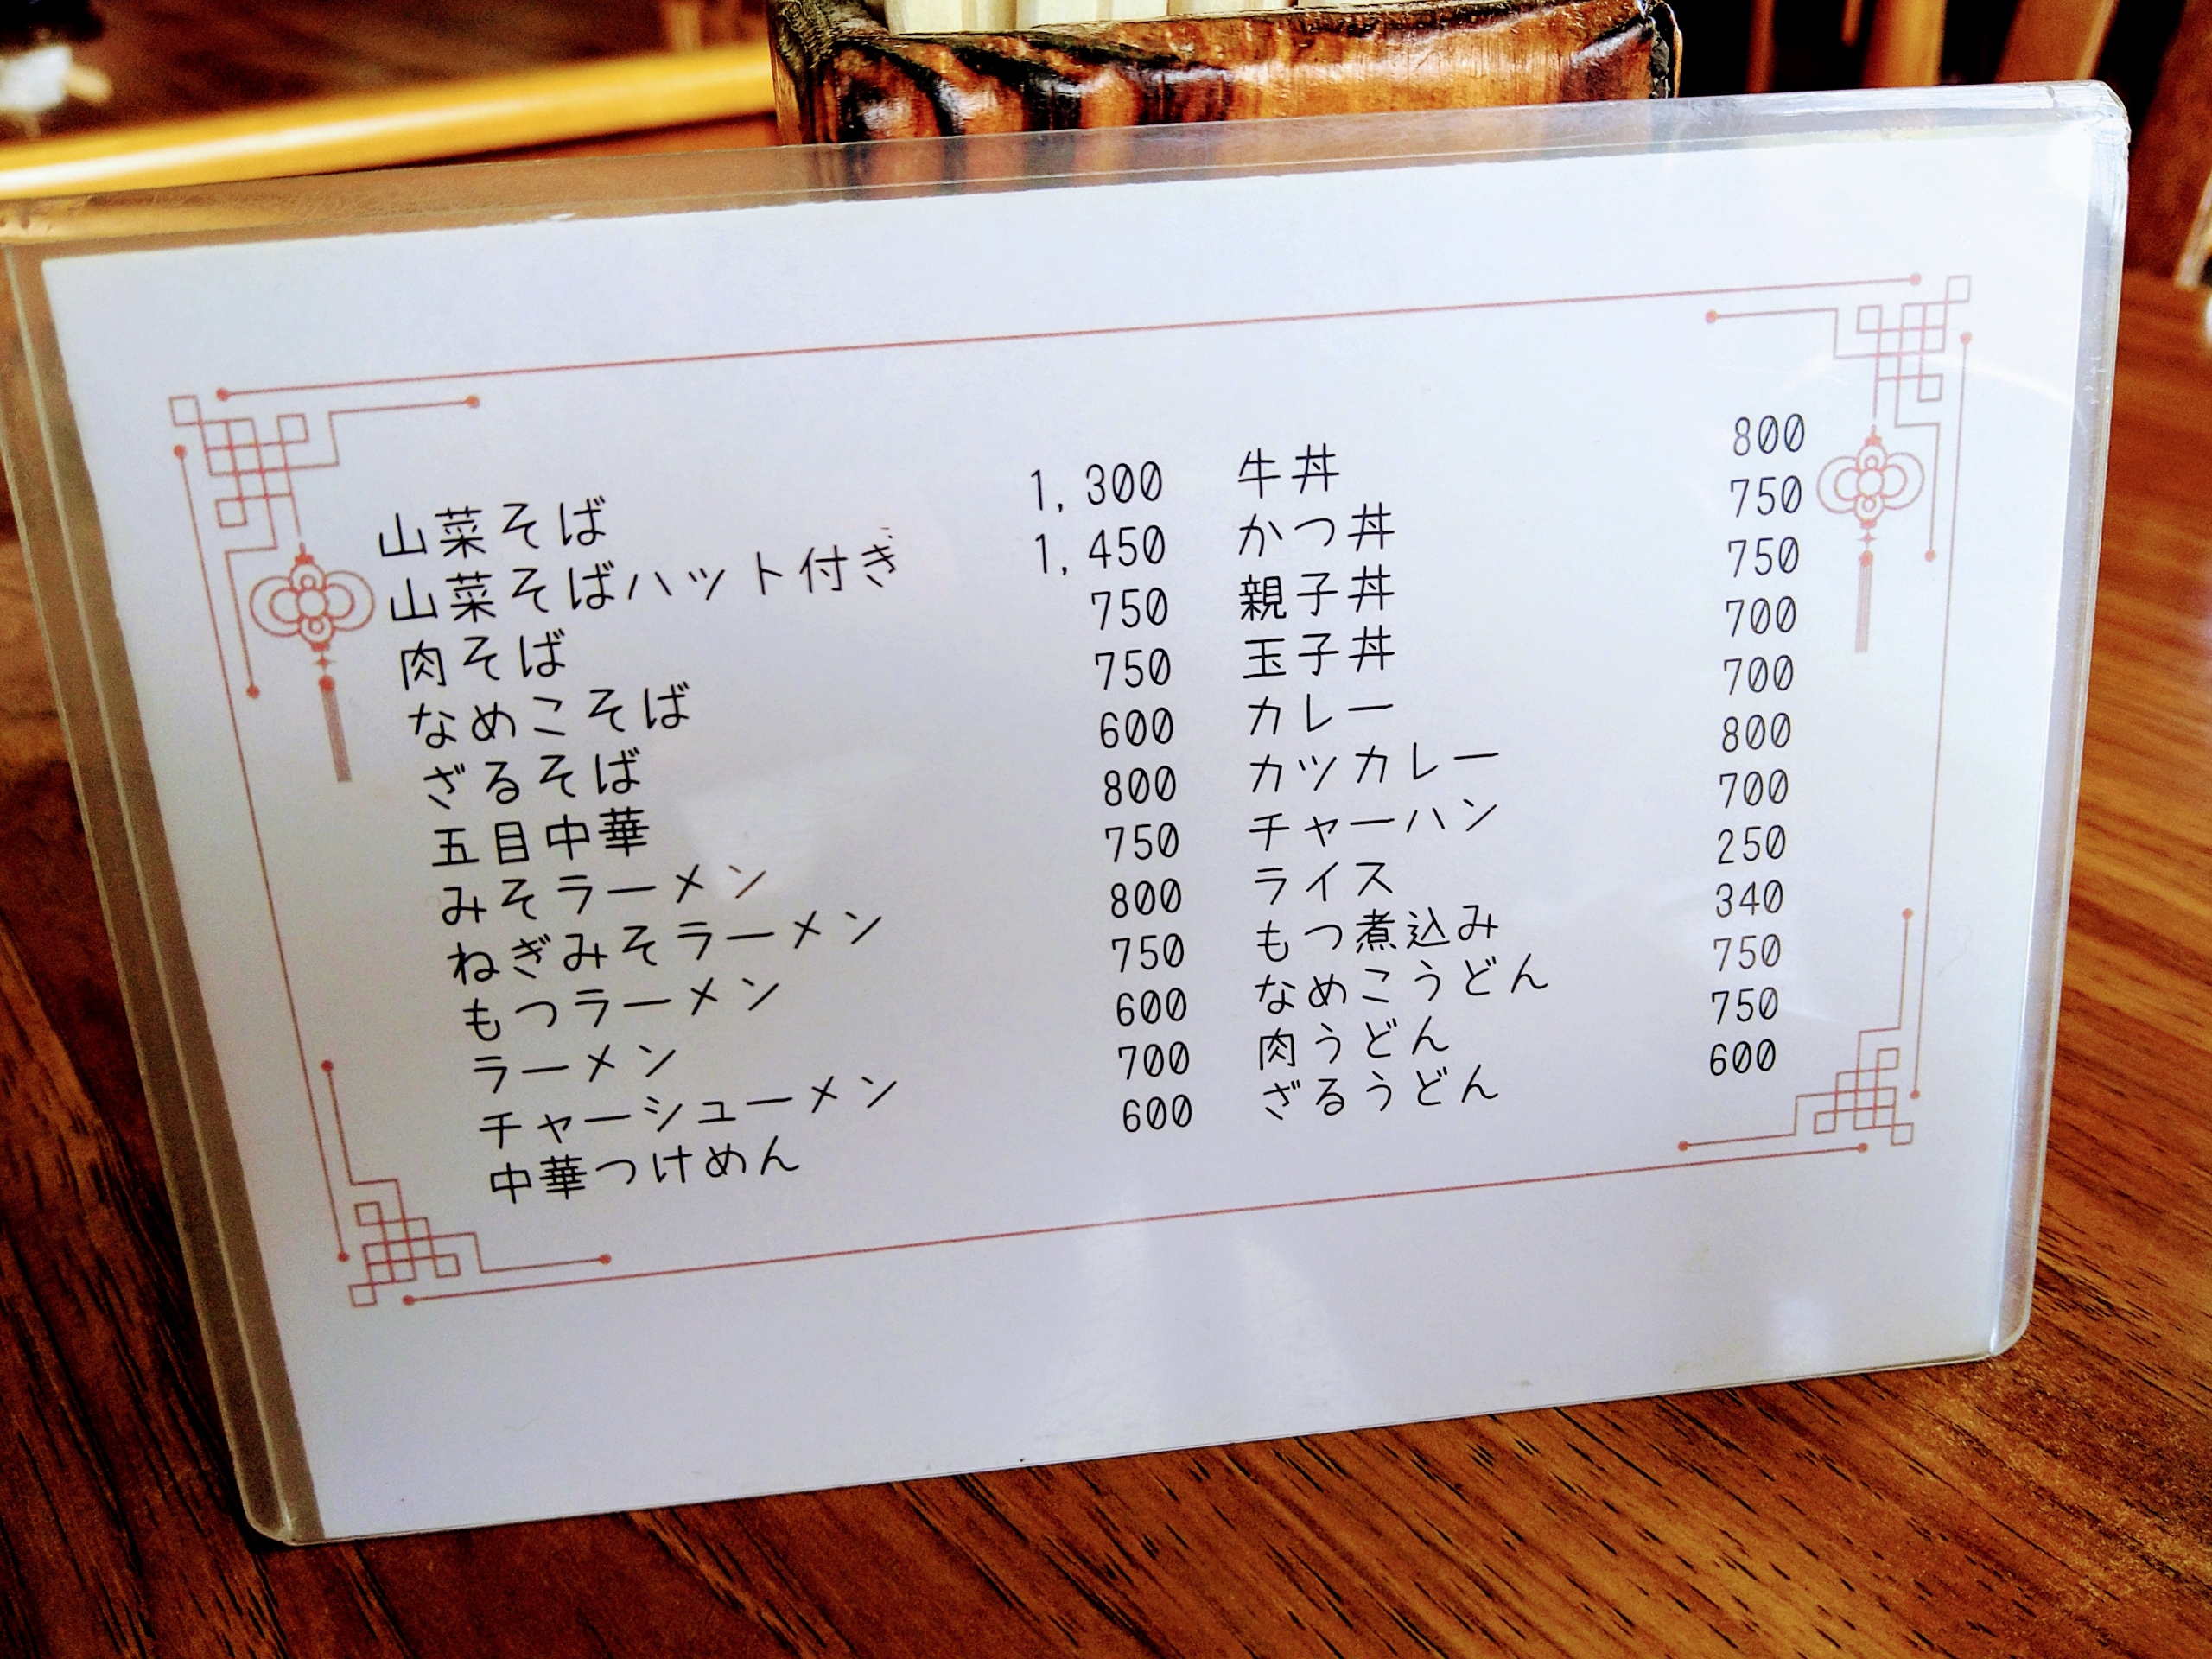 山菜そば 1,300
山菜そばハット付き 1,450
肉そば 750
なめこそば 750
ざるそば 600
五目中華 800
みそラーメン 750
ねぎみそラーメン 800
もつラーメン 750
ラーメン 600
チャーシューメン 700
中華つけめん 600
牛丼 800
かつ丼 750
親子丼 750
玉子丼 700
カレー 700
カツカレー 800
チャーハン 700
ライス 250
もつ煮込み 340
なめこうどん 750
肉うどん 750
ざるうどん 600